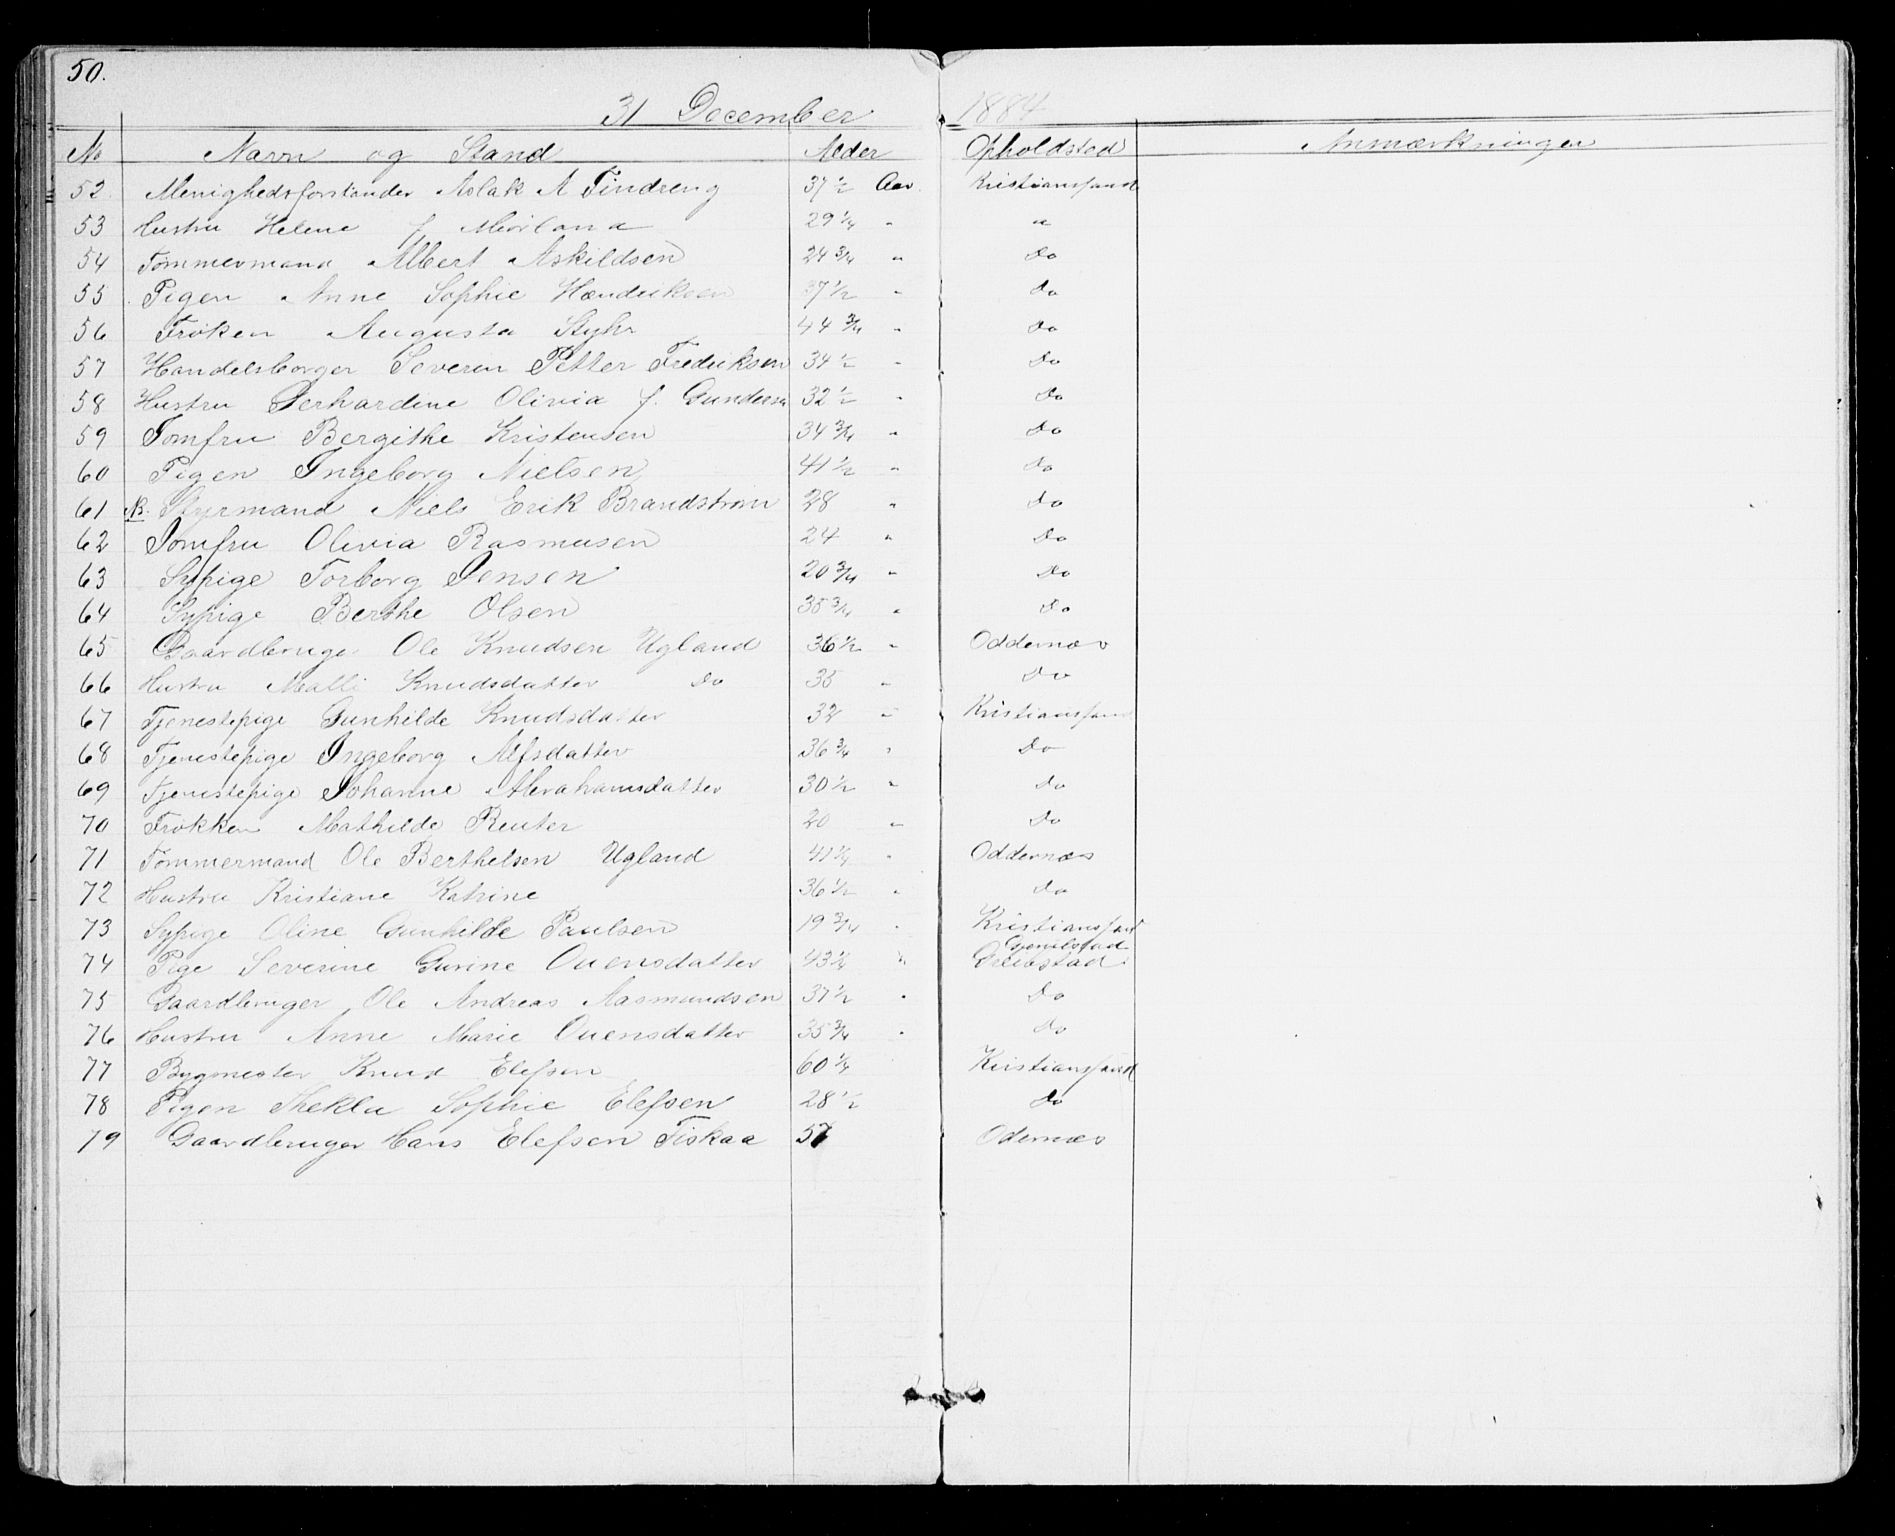 50.
31 December 1884
No Navn og Stand Alder Opholdsted Anmærkninger
52 Menighedsforstander Aslak A Tindreng 37 1/2 Aar Kristianssand
53 Hustru Helene f Mørland 29 1/4 " "
54 Tømmermand Albert Askildsen 24 3/4 " Do
55 Pigen Anne Sophie Hendriksen 37 1/2 " Do
56 Frøken Augusta Styhr 44 3/4 " Do
57 Handelsborger Severin Petter Fredriksen 34 1/2 " Do
58 Hustru Gerhardine Olivia f. Gundersen 32 1/2 " Do
59 Jomfru Bergithe Kristensen 34 3/4 " Do
60 Pigen Ingeborg Nielsen 41 1/2 " Do
61 NB. Styrmand Niels Erik Brandstrøm 28 " Do
62 Jomfru Olivia Rasmusen 24 " Do
63 Sypige Torborg Jensen 20 3/4 " Do
64 Sypige Berthe Olsen 35 3/4 " Do
65 Gaardbruge Ole Knudsen Ugland 36 1/2 " Oddernæs
66 Hustru Malli Knudsdatter Do 35 " Do
67 Tjenestepige Gunhilde Knudsdatter 32 " Kristianssand
68 Tjenestepige Ingeborg Alfsdatter 36 3/4 " Do
69 Tjenestepige Johanne Abrahamsdatter 30 1/2 " Do
70 Frøkken Mathilde Reuter 20 " Do
71 Tømmermand Ole Berthelsen Ugland 41 " Oddernæs
72 Hustru Kristiane Katrine 36 1/2 " Do
73 Sypige Oline Gunhilde Paulsen 19 3/4 " Kristianssand
74 Pige Severine Gurine Ouensdatter 43 " Greibstad
75 Gaardbruger Ole Andreas Aasmundsen 37 1/2 " Do
76 Hustru Anne Marie Ouensdatter 35 3/4 " Do
77 Bygmester Knud Elefsen 60 Kristianssand
78 Pigen Thekla Sophie Elefsen 28 1/2 Do
79 Gaardbruger Hans Elefsen Fiskaa 57 Odernæs